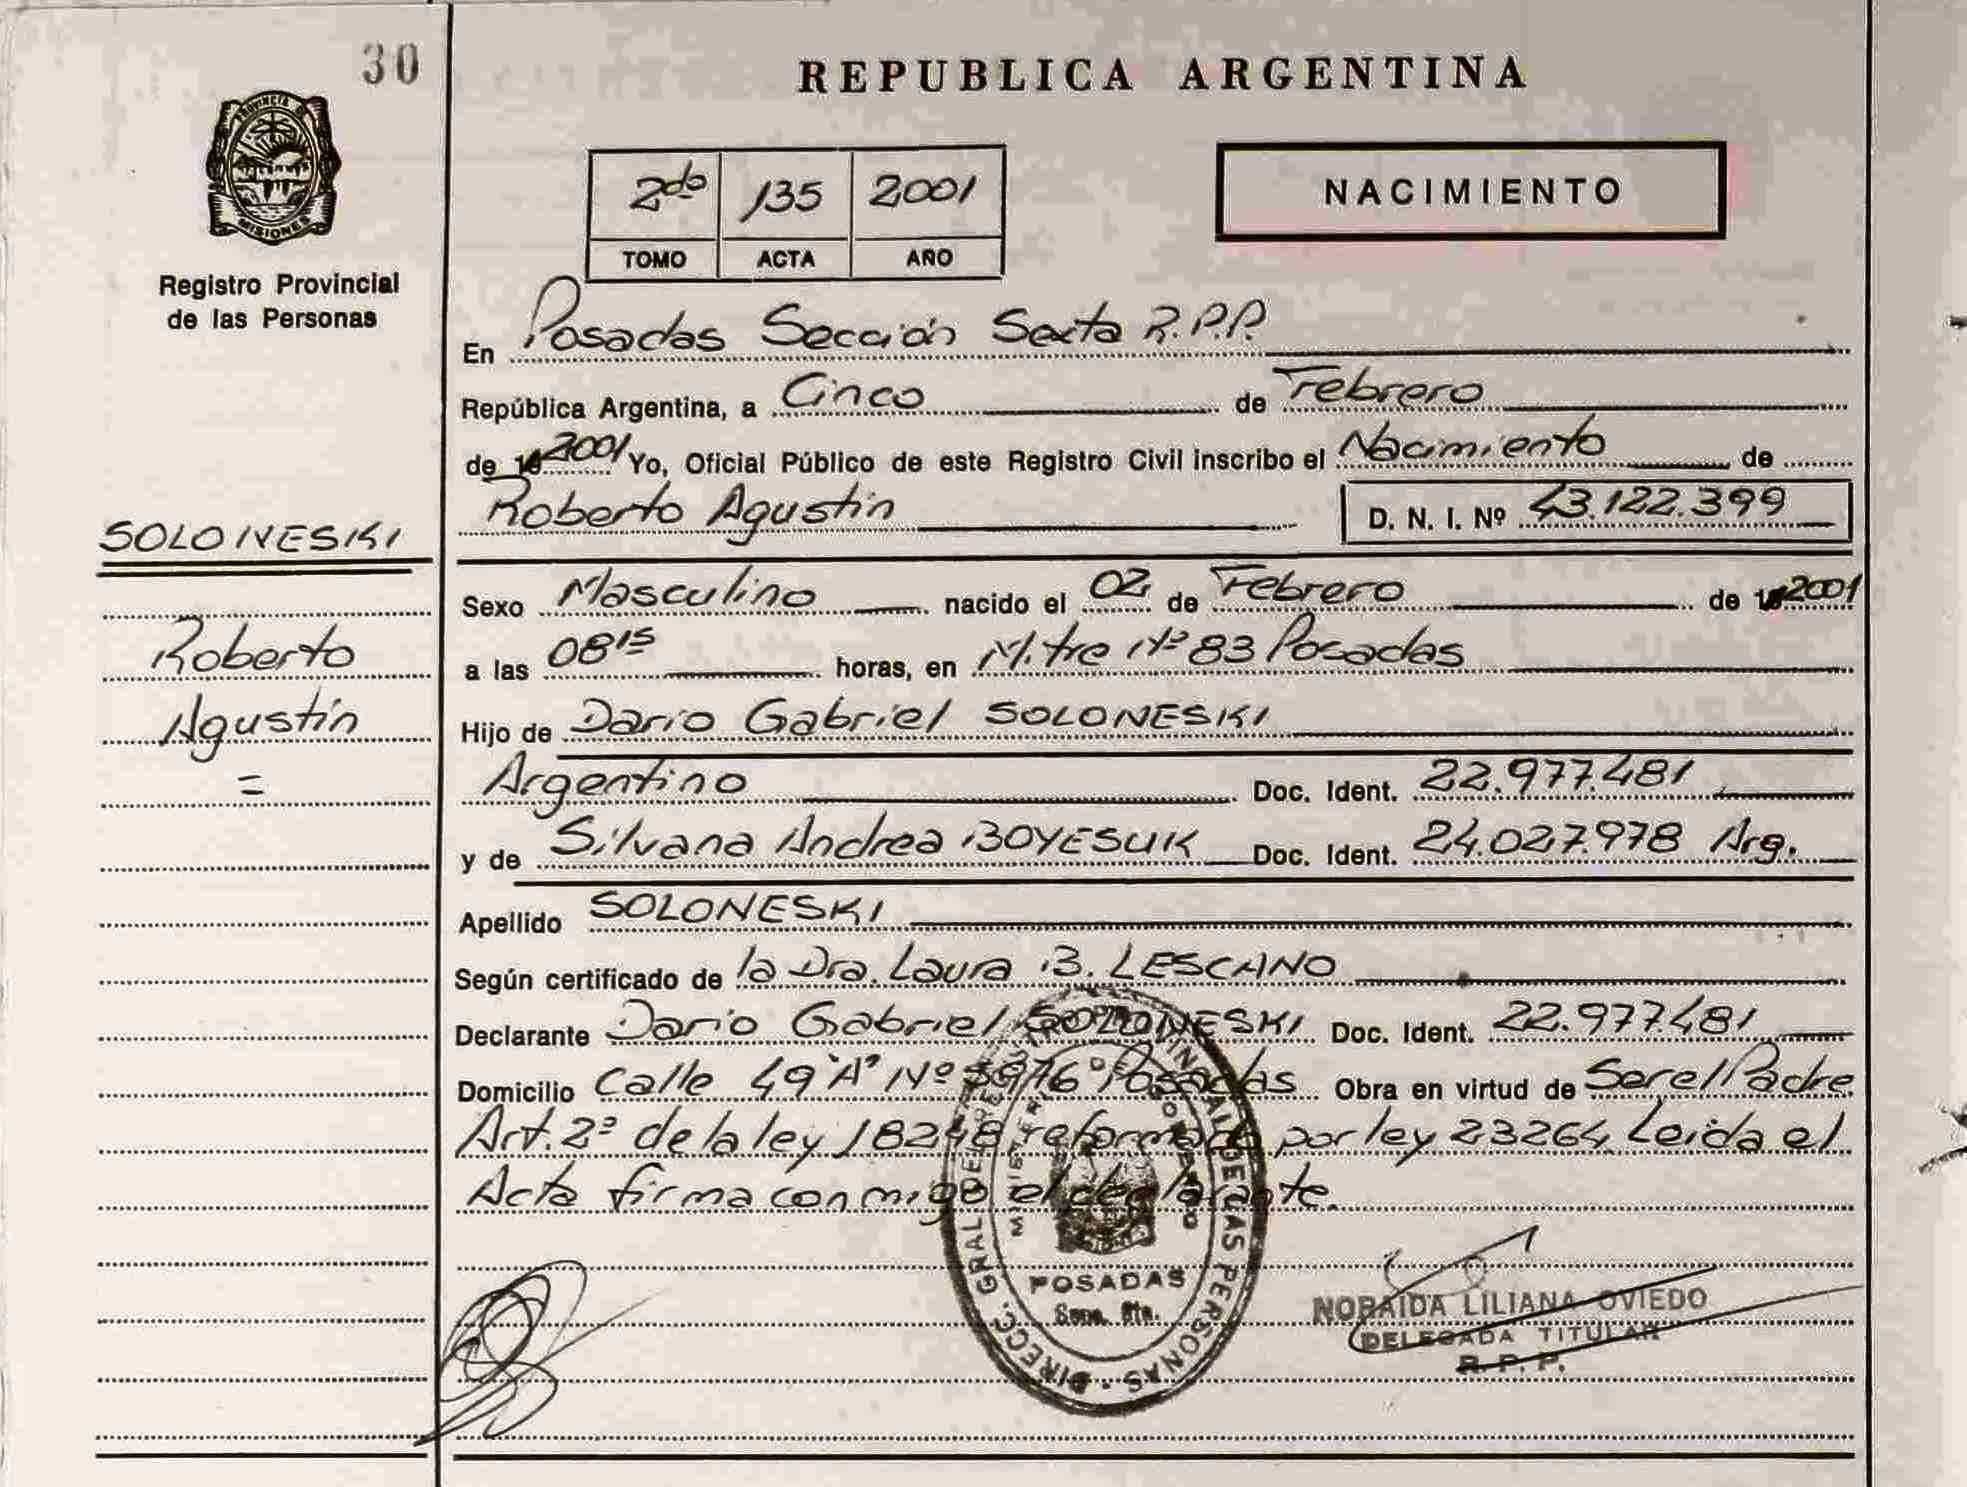 30
PROVINCIA DE
MISIONES
Registro Provincial
de las Personas
SOLONESKI
Roberto
Agustín
=
REPUBLICA ARGENTINA
2do 135 2001
TOMO ACTA AÑO
NACIMIENTO
En Posadas Sección Sexta R.P.P.
República Argentina, a Cinco de Febrero
de 2001 Yo, Oficial Público de este Registro Civil inscribo el Nacimiento de
Roberto Agustín D. N. I. Nº 43.122.399
Sexo Masculino nacido el 02 de Febrero de 2001
a las 08 15 horas, en Mitre Nº 83 Posadas
Hijo de Dario Gabriel SOLONESKI
Argentino Doc. Ident. 22.977.481
y de Silvana Andrea BOYESUK Doc. Ident. 24.027.978 Arg.
Apellido SOLONESKI
Según certificado de la Dra. Laura B. LESCANO
Declarante Dario Gabriel SOLONESKI Doc. Ident. 22.977.481
Domicilio Calle 49 "A" Nº Posadas Obra en virtud de Ser el Padre
Art. 2º de la ley 18248 reformada por ley 23264 Leida el
Acta firma conmigo el declarante.
DIRECC. GRAL DE LAS PERSONAS
POSADAS
Secc. 6ta.
NORAIDA LILIANA OVIEDO
DELEGADA TITULAR
R. P. P.